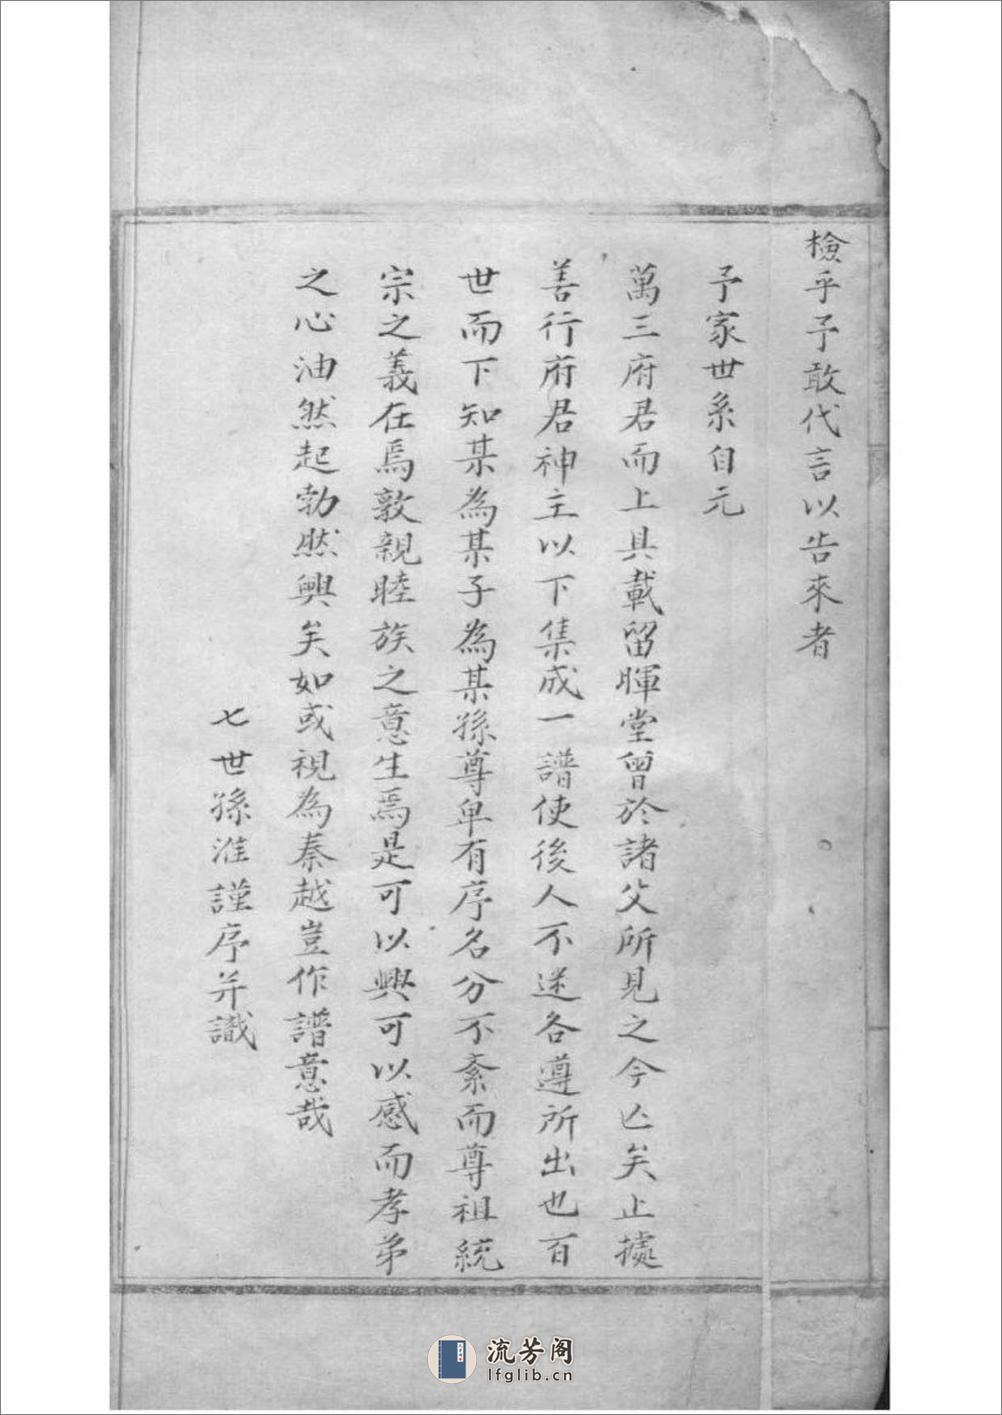 檢乎予敢代言以告來者
予家世系自元
萬三府君而上具載留暉堂曾於諸父所見之今亡矣止據
善行府君神主以下集成一譜使後人不迷各遵所出也百
世而下知某為某子為某孫尊卑有序名分不紊而尊祖統
宗之義在焉敦親睦族之意生焉是可以興可以感而孝弟
之心油然起勃然興矣如或視為秦越豈作譜意哉
七世孫淮謹序并識
流芳阁
lfglib.cn